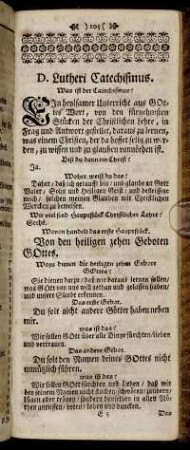 ( 105 )
D. Lutheri Catechismus.
Was ist der Catechismus?
Ein heylsamer Unterricht aus GOttes
Wort, von den fürnehmsten
Stücken der Christlichen Lehre, in
Frag und Antwort gestellet, daraus zu lernen,
was einem Christen, der da hoffet selig zu werden,
zu wissen und zu glauben vonnöthen ist.
Bist du dann ein Christ?
Ja.
Woher weist du das?
Daher, daß ich getaufft bin, und glaube an Gott
Vater, Sohn und Heiligen Geist, und befleissige
mich, solchen meinen Glauben mit Christlichen
Wercken zu beweisen.
Wie viel sind Hauptstück Christlicher Lehre?
Sechs.
Wovon handelt das erste Hauptstück.
Von den heiligen zehen Geboten
GOttes.
Wozu dienen die heiligen zehen Gebote
GOttes?
Sie dienen darzu, daß wir daraus lernen sollen,
was GOtt von uns will gethan und gelassen haben,
und unsere Sünde erkennen.
Das erste Gebot.
Du solt nicht andere Götter haben neben
mir.
was ist das?
Wir sollen GOtt über alle Ding fürchten, lieben
und vertrauen.
Das andere Gebot.
Du solt den Namen deines GOttes nicht
unnützlich führen.
was ist das?
Wir sollen GOtt fürchten und lieben, daß wir
bey seinem Namen nicht fluchen, schwören, zaubern,
lügen oder trügen, sondern denselben in allen Nöthen
anruffen, beten, loben und dancken.
Das